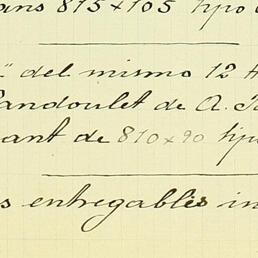 815×105 tipo
" del mismo 12
Landoulet de A.
de 810×90 tipo
entregables in